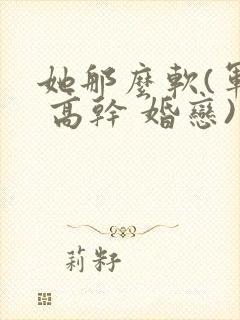 她那麼軟(軍
高幹 婚戀)
莉籽